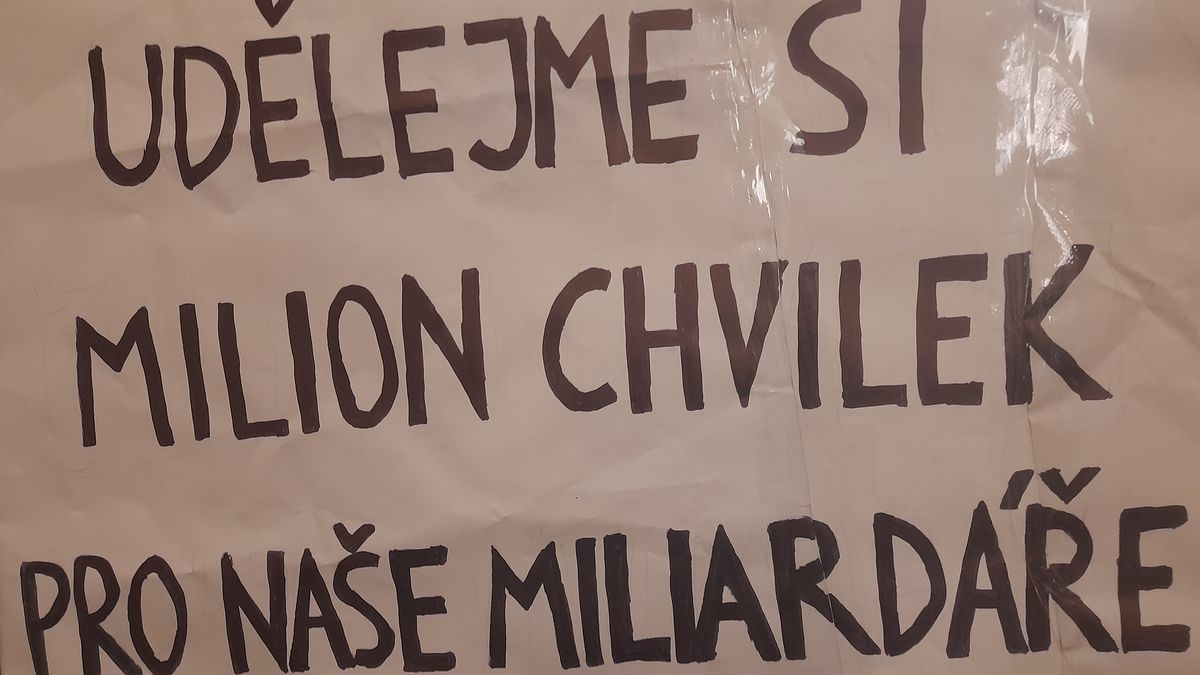 UDĚLEJME SI
MILION CHVILEK
PRO NAŠE MILIARDÁŘE